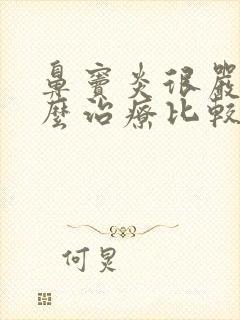 鼻竇炎很嚴
麼治療比較
何炅